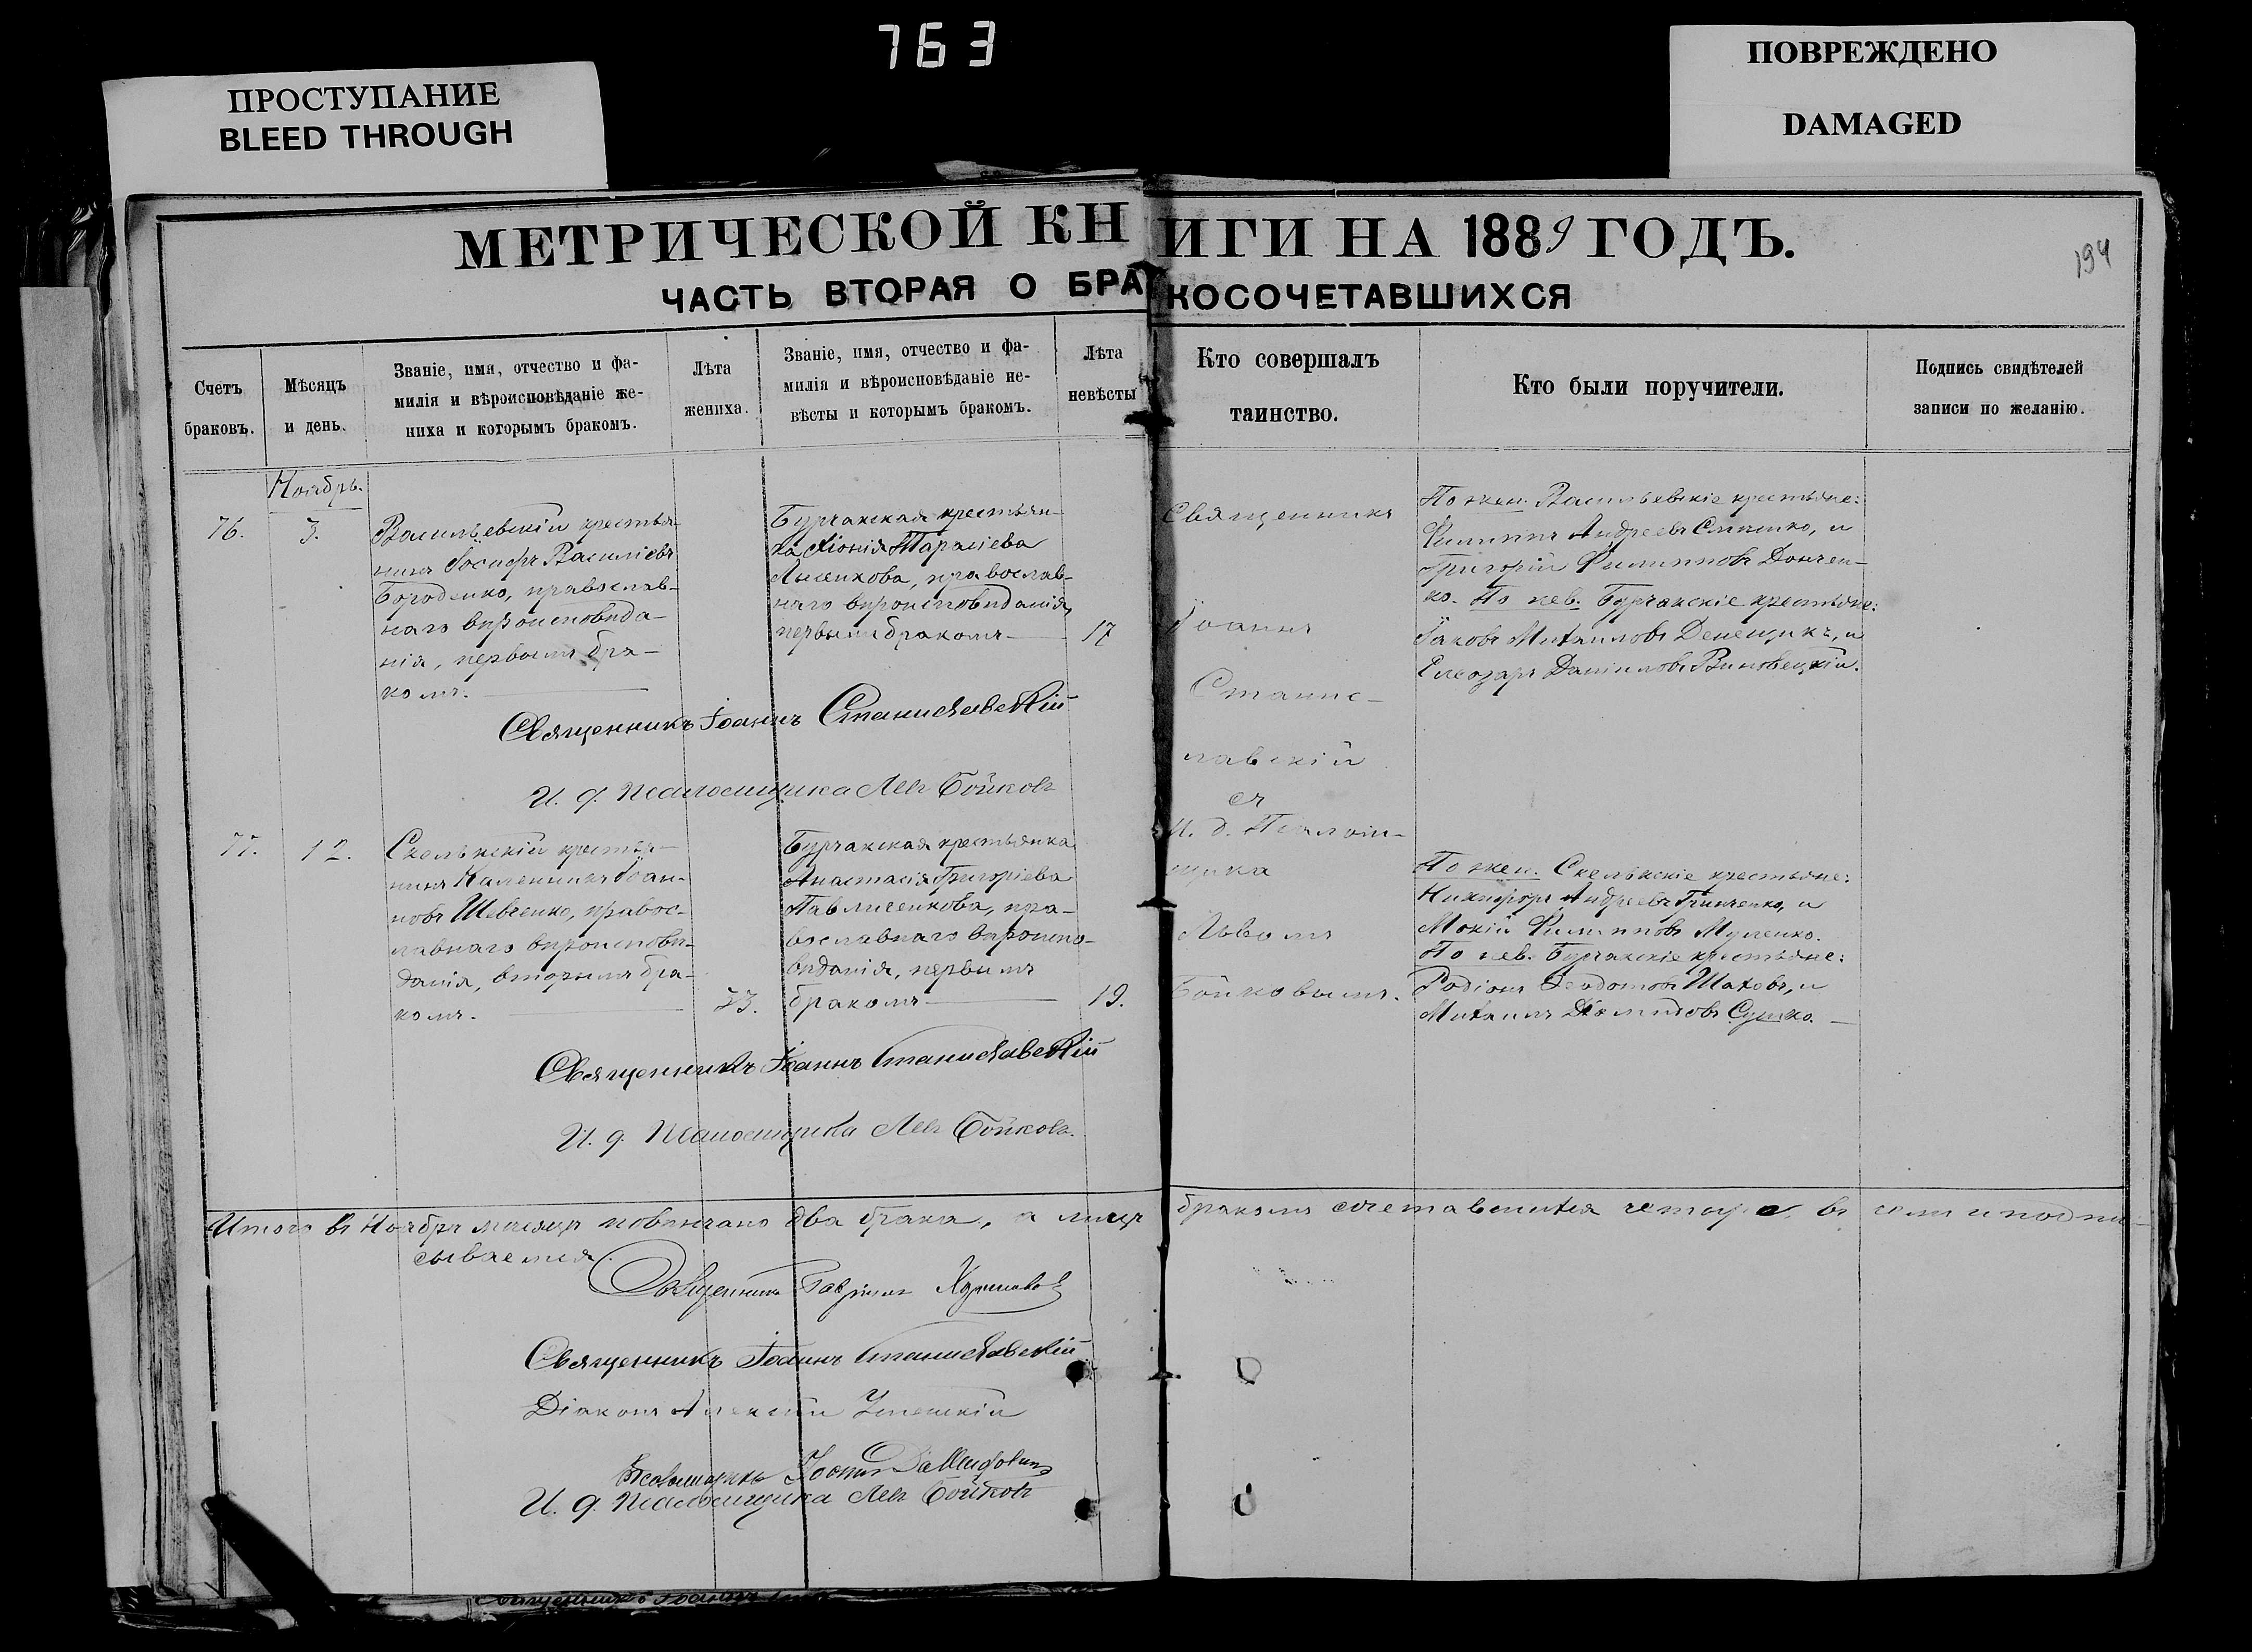 763
ПРОСТУПАНИЕ
BLEED THROUGH
ПОВРЕЖДЕНО
DAMAGED
МЕТРИЧЕСКОЙ КНИГИ НА 1889 ГОДЪ.
194
ЧАСТЬ ВТОРАЯ О БРАКОСОЧЕТАВШИХСЯ
Счетъ
браковъ.
Мѣсяцъ
и день.
Званіе, имя, отчество и фа-
милія и вѣроисповѣданіе же-
ниха и которымъ бракомъ.
Лѣта
жениха.
Званіе, имя, отчество и фа-
милія и вѣроисповѣданіе не-
вѣсты и которымъ бракомъ.
Лѣта
невѣсты
Кто совершалъ
таинство.
Кто были поручители.
Подпись свидѣтелей
записи по желанію.
Ноябрь.
76.
3.
Васильевскій крестья-
нинъ Іосифъ Василіевъ
Бороденко, православ-
наго вѣроисповѣда-
нія, первымъ бра-
комъ.
Бурчакская крестьян-
ка Хіонія Тарасіева
Лысенкова, православ-
наго вѣроисповѣданія,
первымъ бракомъ
17
Священникъ
Іоаннъ
Станис-
лавскій
съ
И. д. Псалом-
щика
Львомъ
Бойковымъ.
По жен. Васильевскіе крестьяне:
Филиппъ Андреевъ, и
Григорій Филипповъ Дончен-
ко. По нев. Бурчакскіе крестьяне:
Іаковъ Михаиловъ Денещикъ, и
Елеозаръ Даниловъ Виновецкій.
Священникъ Іоаннъ Станиславскій
И. д. псаломщика Левъ Бойковъ
77.
12.
Скельскій крестья-
нинъ Каленникъ Іоан-
новъ Шевченко, правос-
лавнаго вѣроисповѣ-
данія, вторымъ бра-
комъ.
23.
Бурчакская крестьянка
Анастасія Григоріева
Павличенкова, пра-
вославнаго вѣроиспо-
вѣданія, первымъ
бракомъ
19.
По жен. Скельскіе крестьяне:
Никифоръ Андреевъ Гринченко, и
Мокій Филипповъ Муленко.
По нев. Бурчакскіе крестьяне:
Родіонъ Феодотовъ Шаховъ, и
Михаилъ Діомидовъ Сушко.
Священникъ Іоаннъ Станиславскій
И. д. псаломщика Левъ Бойковъ.
Итого въ Ноябрѣ мѣсяцѣ повѣнчано два брака, а лицъ бракомъ сочетавшихся четыре, въ семъ и подпи-
сываемся.
Священникъ Гавріилъ
Священникъ Іоаннъ Станиславскій
Діаконъ Алексій Успенскій
Псаломщикъ Іоаннъ
И. д. псаломщика Левъ Бойковъ